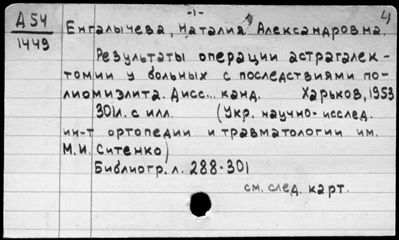 -1-
4
Д 54
1449
Енгалычева, Наталия Александровна.
Результаты операции астрагалек-
томии у больных с последствиями по-
лиомиэлита. Дисс... канд. Харьков, 1953
301л. с илл. (Укр. научно-исслед.
ин-т ортопедии и травматологии им.
М.И. Ситенко)
Библиогр. л. 288-301
см. след. карт.